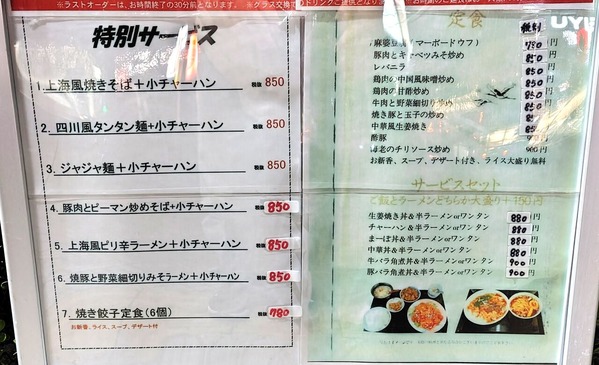 ※ラストオーダーは、お時間終了の30分前となります。
※グラス交換で
ドリンクご提供となり
特別サービス
1.上海風焼きそば+小チャーハン 税抜 850
2. 四川風タンタン麺+小チャーハン 税抜 850
3. ジャジャ麺+小チャーハン 税抜 850
4. 豚肉とピーマン炒めそば+小チャーハン 税抜 850
5. 上海風ピリ辛ラーメン+小チャーハン 税抜 850
6. 焼豚と野菜細切りみそラーメン+小チャーハン 税抜 850
7. 焼き餃子定食(6個) 税抜 780
お新香、ライス、スープ、デザート付
定食
税別
麻婆豆腐(マーボードウフ) 780円
豚肉とキャベツみそ炒め 850円
レバニラ 850円
鶏肉の中国風味噌炒め 850円
鶏肉の甘酢炒め 850円
牛肉と野菜細切り炒め 850円
焼き豚と玉子の炒め 850円
中華風生姜焼き 850円
酢豚 900円
海老のチリソース炒め 900円
お新香、スープ、デザート付き、ライス大盛り無料
サービスセット
ご飯とラーメンどちらか大盛り+150円
生姜焼き丼&半ラーメンorワンタン 880円
チャーハン&半ラーメンorワンタン 880円
まーぼ丼&半ラーメンorワンタン 880円
中華丼&半ラーメンorワンタン 880円
牛バラ角煮丼&半ラーメンorワンタン 900円
豚バラ角煮丼&半ラーメンorワンタン 900円